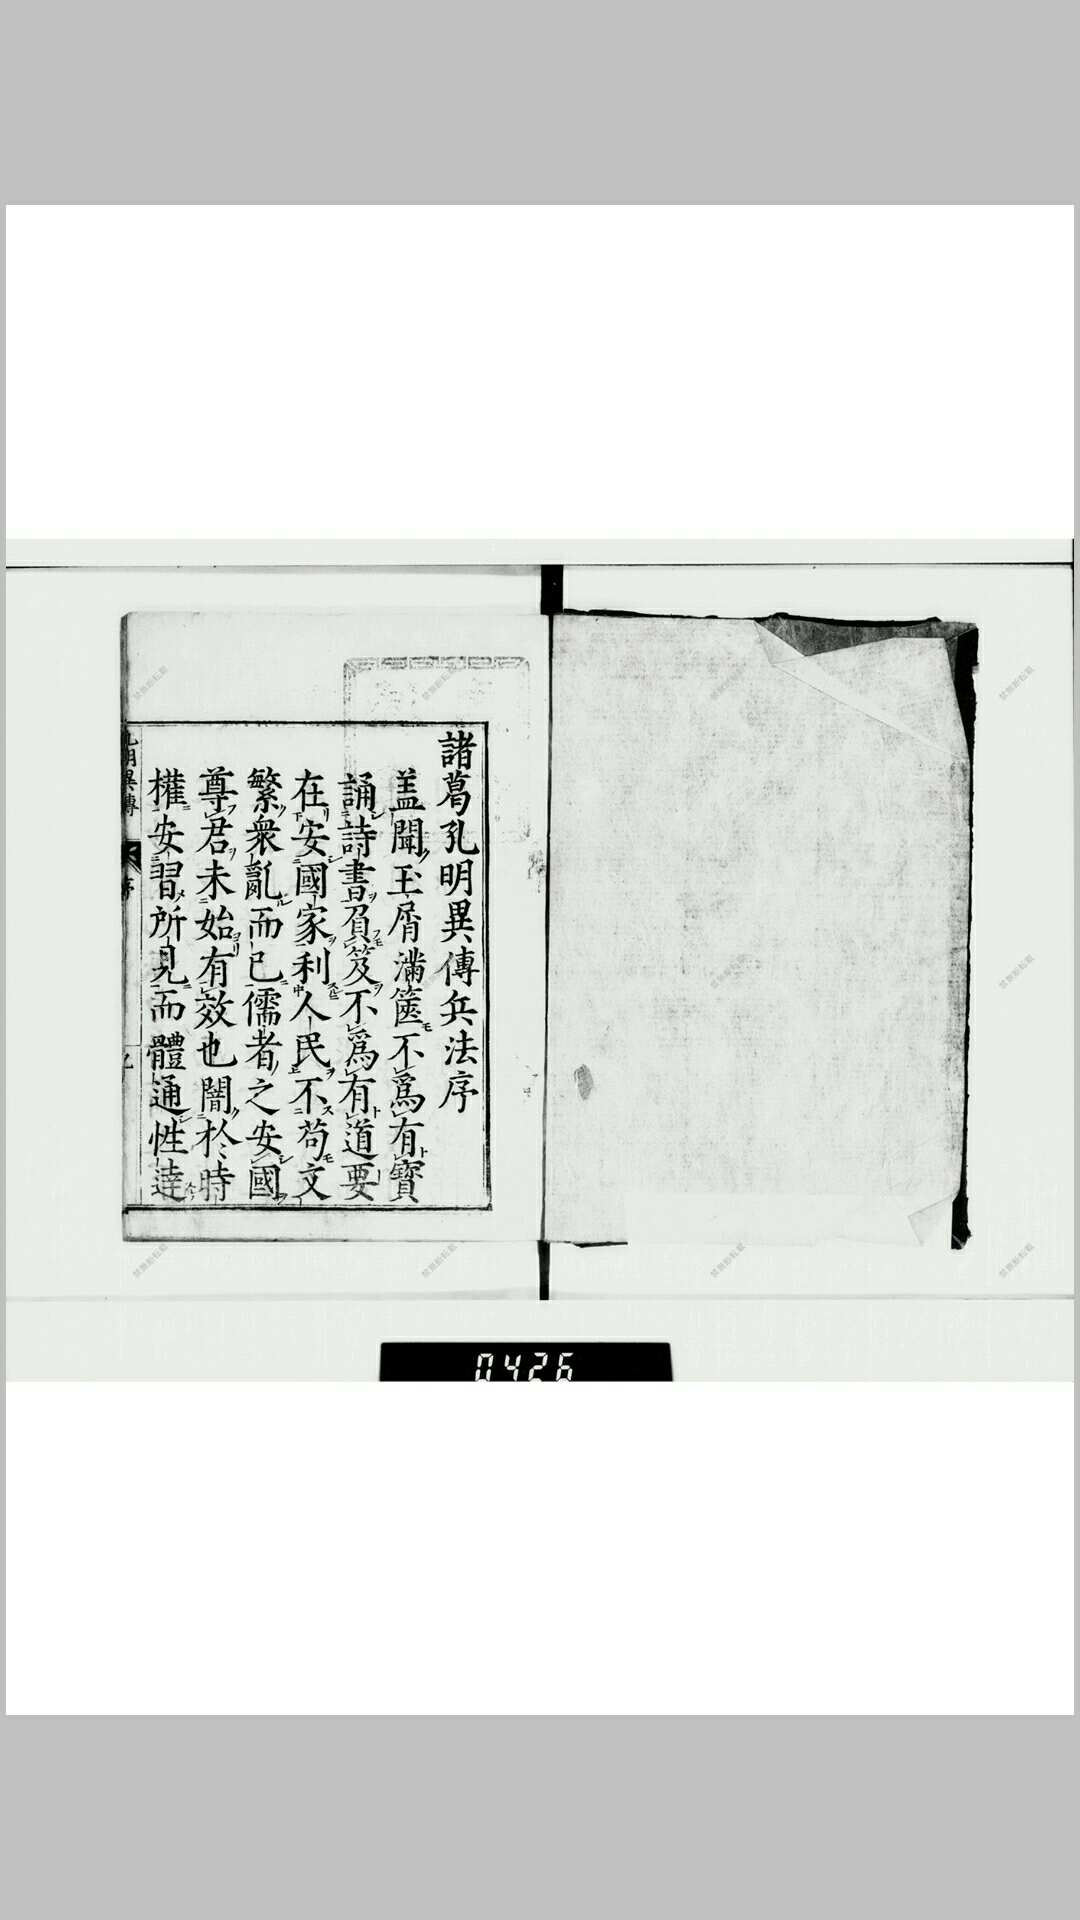 諸葛孔明異傳兵法序
盖聞玉屑滿篋不爲有寶
誦詩書負笈不爲有道要
在安國家利人民不苟文
繁衆亂而已儒者之安國
尊君未始有效也闇於時
權安習所見而體通性達
孔明異傳
序
0426